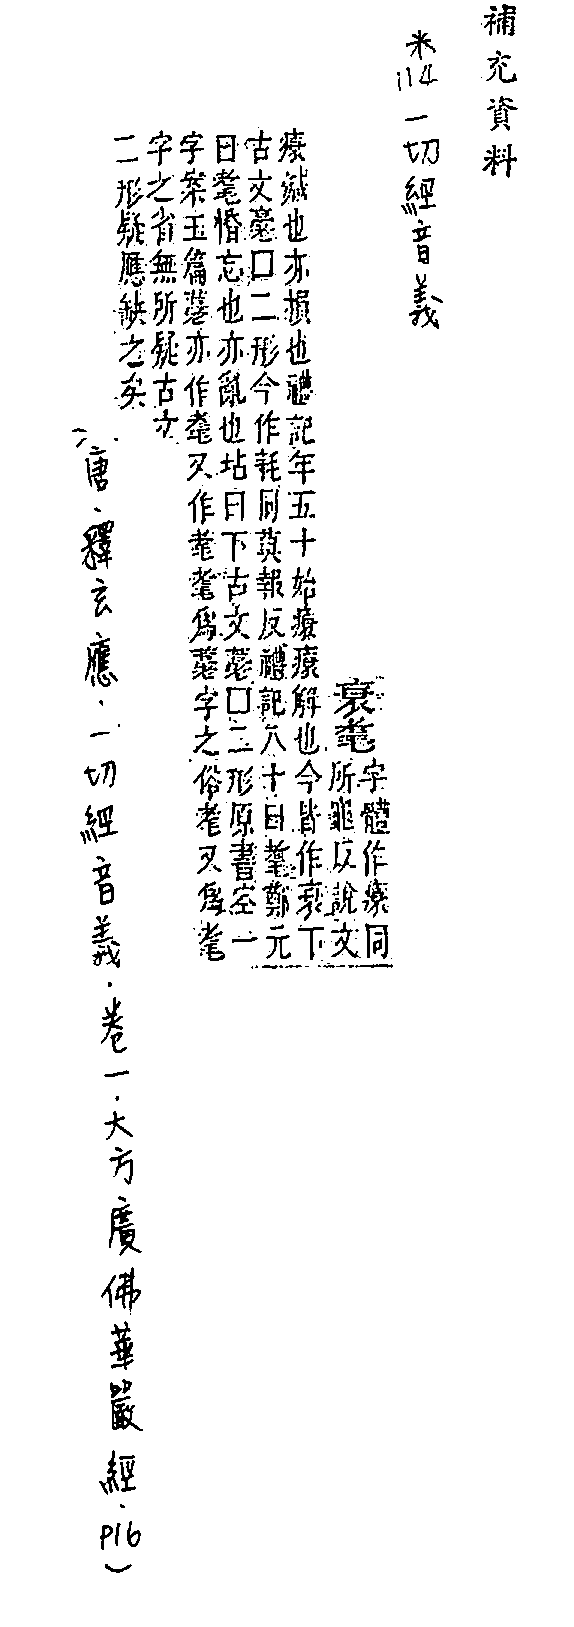 補充資料
※114 一切經音義
衰耄
字體作𤸬同
所龜反說文
𤸬減也亦損也禮記年五十始𤸬𤸬解也今皆作衰下
古文𦿋口二形今作耗同莫報反禮記八十曰耄鄭元
曰耄惛忘也亦亂也坫曰下古文𦿋口二形原書空一
字案玉篇𦿋亦作耄又作耄耄爲𦿋字之俗耄又爲耄
字之省無所疑古文
二形疑應缺之矣
(唐·釋玄應·一切經音義·卷一·大方廣佛華嚴經·P16)